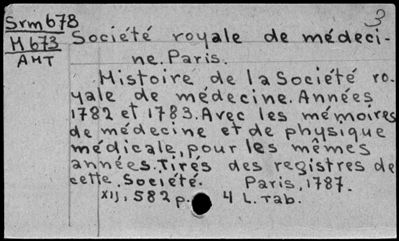 Srm678
3
M673
Société royale de médeci-
AMT
ne. Paris.
Histoire de la Société ro-
yale de médecine. Années
1782 et 1783. Avec les mémoires
de médecine et de physique
médicale, pour les mêmes
années. Tirés des registres de
cette Société. Paris, 1787.
XIJ, 582 p. 4 L. Tab.